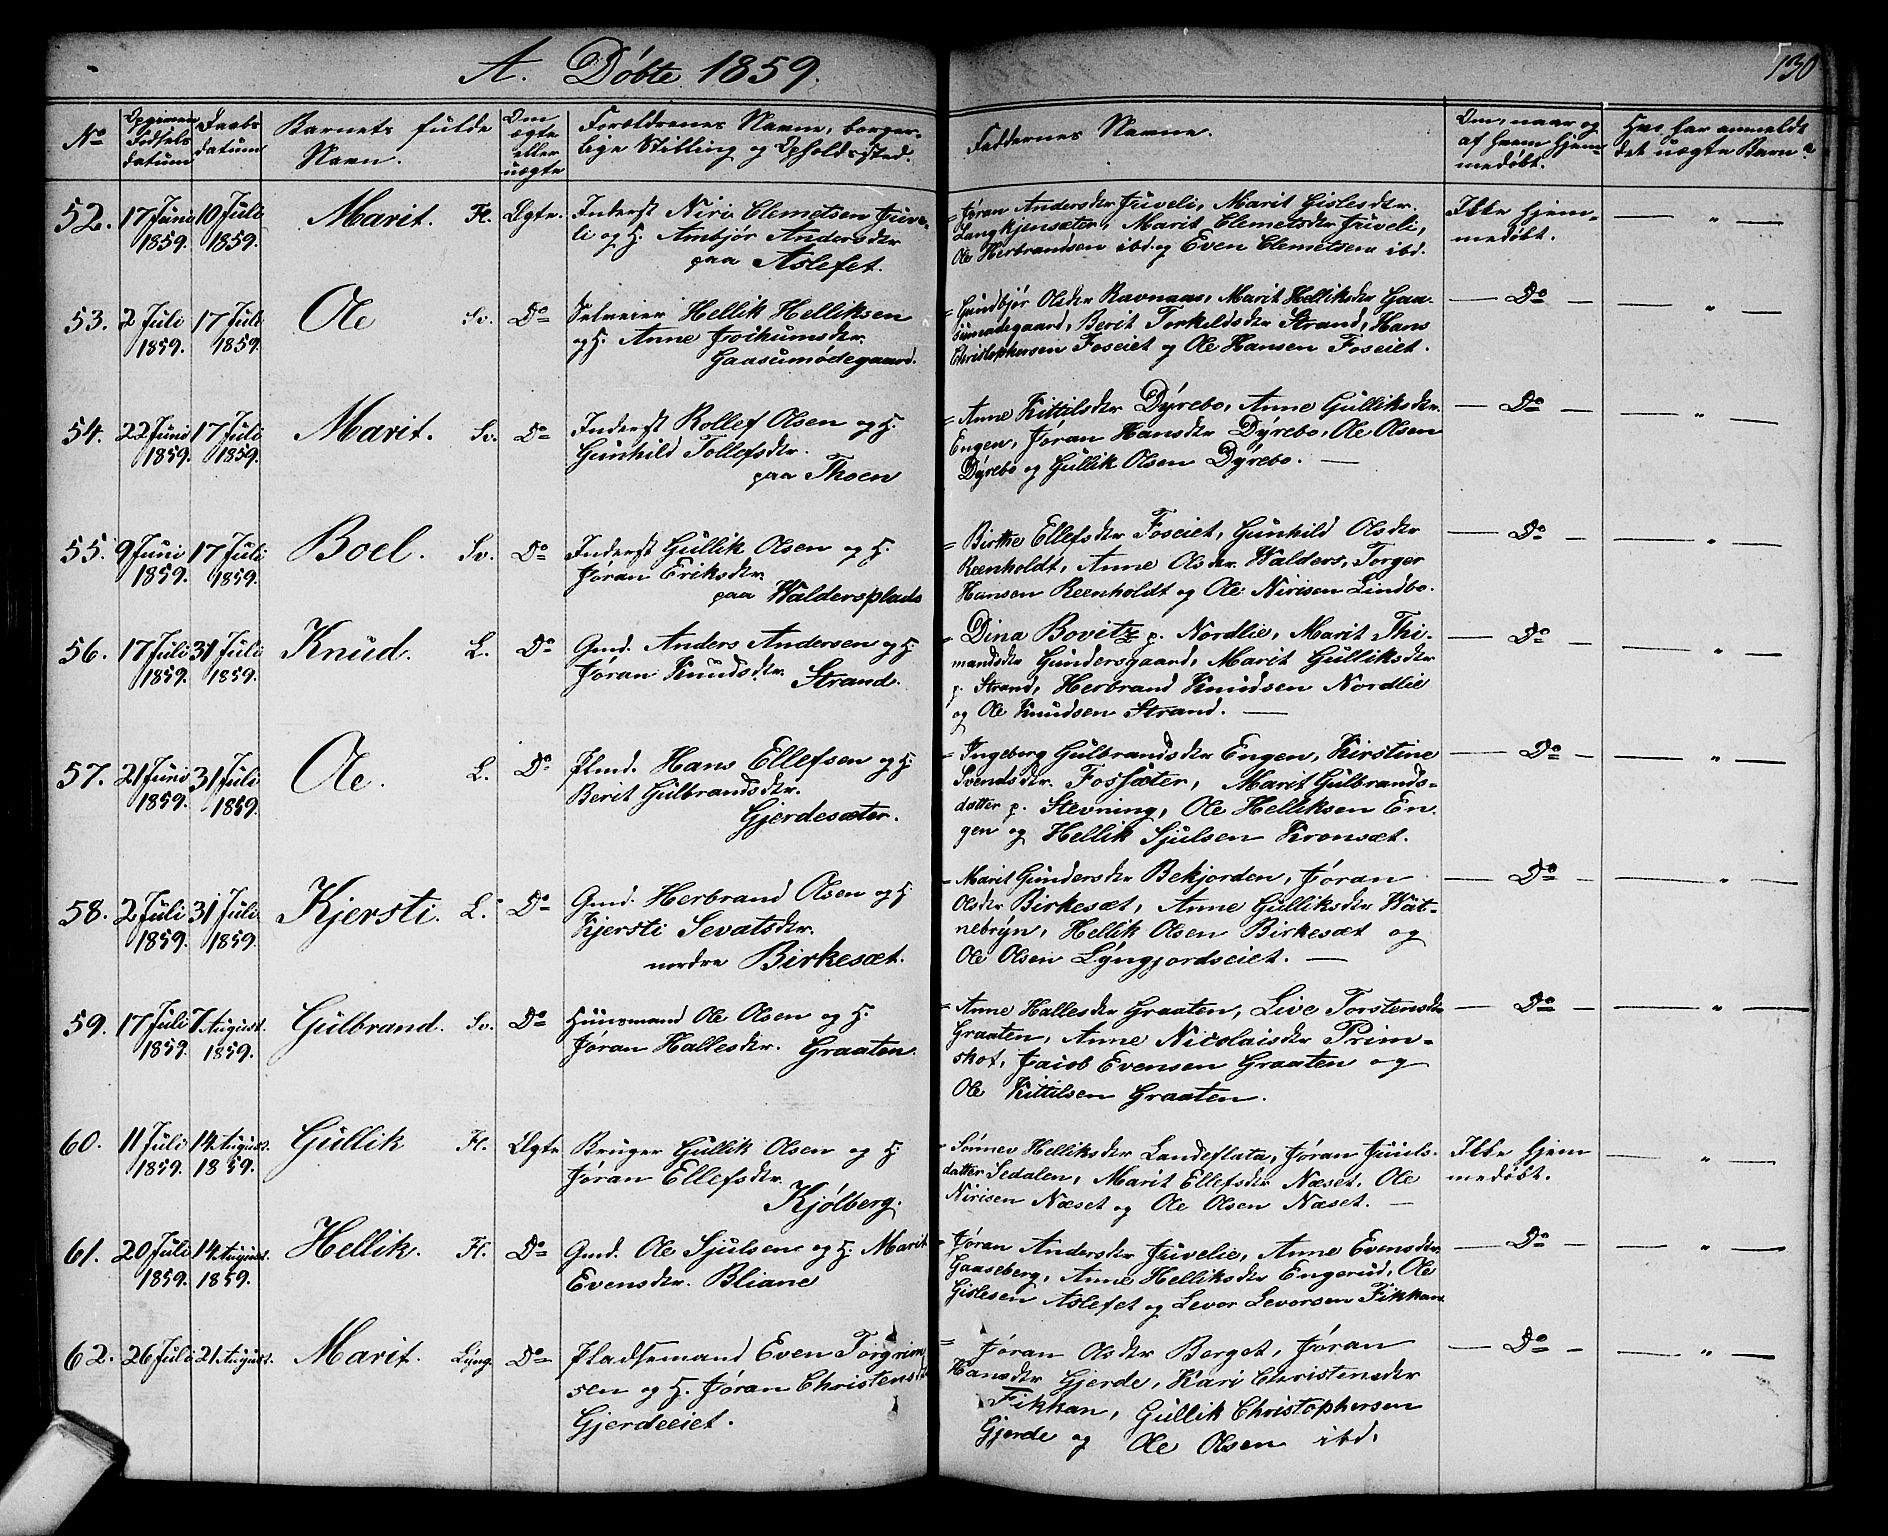 A. Døbte 1859.
130
No
Opgiven Fødsels datum
Daabs datum
Barnets fulde Navn.
Om ægte eller uægte
Forældrenes Navne, borgerlige Stilling og Opholdssted.
Faddernes Navne.
Om, naar og af hvem hjemmedøbt.
Hvo har anmeldt det uægte Barn?
52. 17 Juni 1859. 10 Juli 1859. Marit. Fl. Ægte.
Inderst Niri Clemetsen Juve-
li og H. Ambjør Andersdtr
paa Aslefet.
= Jøran Andersdtr Juveli, Marit Gislesdtr.
Langkjensæter, Marit Clemetsdtr Juveli,
Ole Herbrandsen ibd. og Even Clemetsen ibd.
Ikke hjem-
medøbt.
— " —
53. 2 Juli 1859. 17 Juli 1859. Ole Sv. Do
Selveier Hellik Helliksen
og H. Anne Joikumsdtr.
Gaasumodegaard.
= Gundbjør Olsdtr Ravnaas, Marit Helliksdtr Gaa-
sumodegaard, Berit Torkildsdtr Strand, Hans
Christophersen Foseiet og Ole Hansen Foseiet.
— Do —
— " —
54. 22 Juni 1859. 17 Juli 1859. Marit. Sv. Do
Inderst Rollef Olsen og H.
Gunhild Tollefsdtr.
paa Thoen
= Anne Kittilsdtr Dyrebo, Anne Gulliksdtr.
Engen, Jøran Hansdtr Dyrebo, Ole Olsen
Dyrebo og Gullik Olsen Dyrebo. —
— Do —
— " —
55. 9 Juni 1859. 17 Juli 1859. Boel. Sv. Do
Inderst Gullik Olsen og H.
Jøran Eriksdtr.
paa Waldersplads
= Birthe Ellefsdtr Foseiet, Gunhild Olsdtr
Reenholdt, Anne Olsdtr. Walders, Torger
Hansen Reenholdt og Ole Nirisen Lindbo.
— Do —
— " —
56. 17 Juli 1859. 31 Juli 1859. Knud. L. Do
Gmd. Anders Andersen og H.
Jøran Knudsdtr. Strand.
= Dina Bovitz p. Nordlie, Marit Thi-
mandsdtr Gundersgaard, Marit Gulliksdtr
p. Strand, Herbrand Knudsen Nordlie
og Ole Knudsen Strand. —
— Do —
— " —
57. 21 Juni 1859. 31 Juli 1859. Ole. L. Do
Plmd. Hans Ellefsen og H.
Berit Gulbrandsdtr.
Gjerdesæter.
= Ingeborg Gulbrandsdtr Engen, Kirstine
Svendsdtr. Fossæter, Marit Gulbrands-
datter p. Stevning, Ole Helliksen En-
gen og Hellik Sjulsen Kronsæt.
— Do —
— " —
58. 2 Juli 1859. 31 Juli 1859. Kjersti. L. Do
Gmd. Herbrand Olsen og H
Kjersti Sevatsdtr.
nordre Birkesæt.
= Marit Gundersdtr Bekjorden, Jøran
Olsdtr Birkesæt, Anne Gulliksdtr Wat-
nebryn, Hellik Olsen Birkesæt og
Ole Olsen Lyngjordseiet. —
— Do —
— " —
59. 17 Juli 1859. 7 August. 1859. Gulbrand. Sv. Do
Huusmand Ole Olsen og H.
Jøran Hallesdtr. Graaten.
= Anne Hallesdtr Graaten, Live Torstensdtr
Graaten, Anne Nicolaisdtr Prim-
skot, Jacob Evensen Graaten og
Ole Kittilsen Graaten.
— Do —
— " —
60. 11 Juli 1859. 14 August. 1859. Gullik Fl. Ægte
Bruger Gullik Olsen og H.
Jøran Ellefsdtr.
Kjølberg.
= Sønnev Helliksdtr Landeflata, Jøran Juuls-
datter Sedalen, Marit Ellefsdtr Næset, Ole
Nirisen Næset og Ole Olsen Næset. —
Ikke hjem
medøbt.
— " —
61. 20 Juli 1859. 14 August. 1859. Hellik. Fl. Do
Gmd. Ole Sjulsen og H. Marit
Evensdtr. Bliane
= Jøran Andersdtr Juvelie, Anne Evensdtr.
Gaaseberg, Anne Helliksdtr Engerud, Ole
Gislesen Aslefet og Levor Levorsen Fikkan
— Do —
— " —
62. 26 Juli 21 August. Marit. Lyng. Do
Pladsemand Even Torgrim
sen og H. Jøran Christensdtr
Gjerdeeiet.
= Jøran Olsdtr Berget, Jøran
Hansdtr Gjerde, Kari Christensdtr
Fikkan, Gullik Christophersen
Gjerde og Ole Olsen ibd.
— Do —
— " —